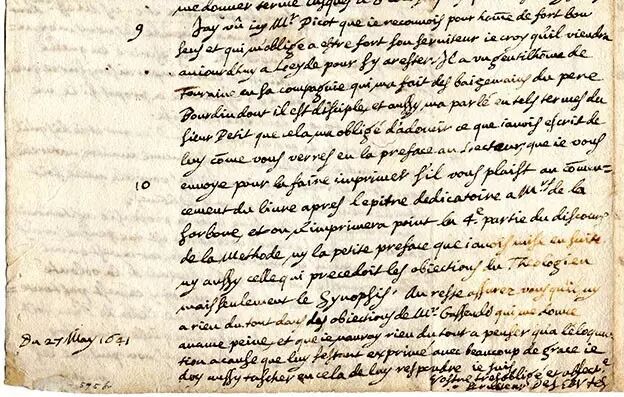 me donner terme jusques
9
J'ay vû icy Mr. Picot que ie reconnois pour hôme de fort bon
sens et qui m'oblige a estre fort son serviteur ie croy qu'il viendra
auiourdhuy a Leyde pour s'y arester. Il a vn gentilhôme de
Touraine en sa compagnie qui m'a fait des baizemains du pere
Bourdin dont il est disciple, et aussy m'a parlé en tels termes du
sieur Petit que cela m'a obligé d'adoucir ce que i'auois escrit de
luy côme vous verres en la preface au Lecteur, que ie vous
10
envoye pour la faire imprimer s'il vous plaist au cômen=
cement du livre apres l'epitre dedicatoire a Mrs. de la
sorbone, et on n'imprimera point la 4e. partie du discours
de la Methode ny la petite preface que i'auois mise en suite
ny aussy celle qui precedoit les obiections du Theologien
mais seulement le Synopsis. Au reste assurez vous qu'il n'y
a rien du tout dans les obiections de Mr. Gassendi qui me donne
aucune peine, et que ie n'auray rien du tout a penser qu'a l'eloquu-
tion a cause que luy s'estant exprimé avec beaucoup de grace ie
doy aussy tascher en cela de luy respondre ie suis
Vostre tres obligé et affectné
serviteur Descartes
Du 27 May 1641